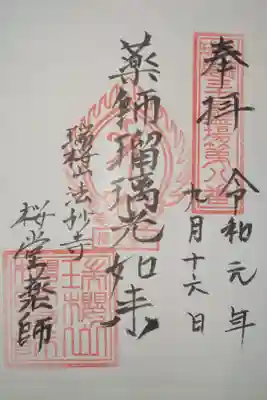 奉拝
令和元年
九月十六日
薬師瑠璃光如来
瑞桜山法妙寺
桜堂薬師